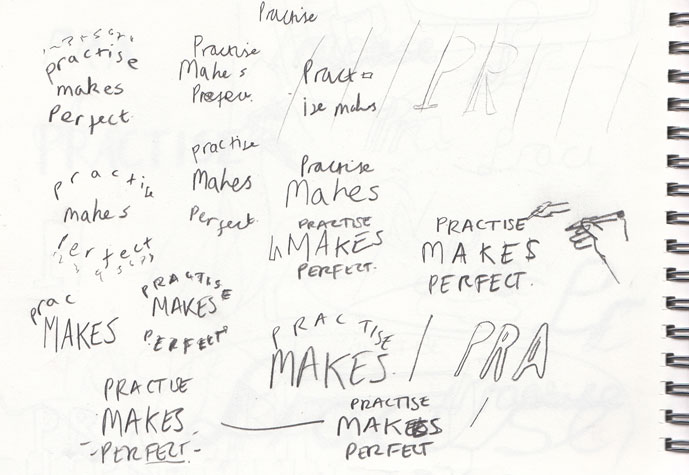 Practise
practise
makes
Perfect.
Practise
Makes
Practise
Makes
Perfect.
Pract
ise makes
PR
practise
Makes
perfect.
practise
makes
perfect
Practise
Makes
PRACTISE
MAKES
PERFECT.
PRACTISE
MAKES
PERFECT.
prac
MAKES
PRACTISE
MAKES
PERFECT
PRACTISE
MAKES.
PRA
PRACTISE
MAKES
-PERFECT-
PRACTISE
MAKES
PERFECT